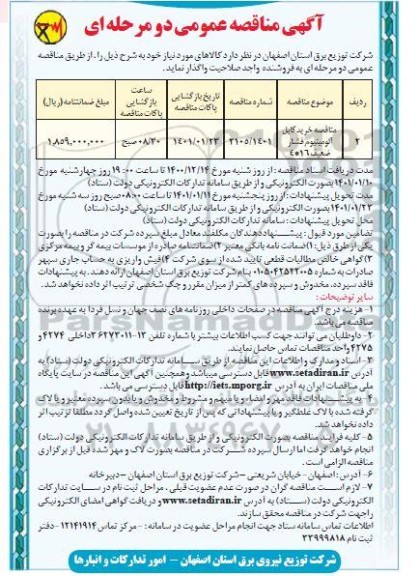 آگهی مناقصه عمومی دو مرحله ای
شرکت توزیع برق استان اصفهان در نظر دارد کالاهای مورد نیاز خود به شرح ذیل را، از طریق مناقصه
عمومی دو مرحله ای به فروشنده واجد صلاحیت واگذار نماید.
ردیف موضوع مناقصه شماره مناقصه تاریخ بازگشایی پاکات مناقصه ساعت بازگشایی پاکات مناقصه مبلغ ضمانتنامه (ریال)
۲ مناقصه خرید کابل آلومینیوم فشار ضعیف ۱۶*۴ ۲۱۰۵/۱۴۰۱ ۱۴۰۱/۰۱/۲۳ ۰۸/۳۰ صبح ۱,۸۵۹,۰۰۰,۰۰۰
مدت دریافت اسناد مناقصه: از روز شنبه مورخ ۱۴۰۰/۱۲/۱۴ تا ساعت ۱۹:۰۰ روز چهارشنبه مورخ
۱۴۰۱/۰۱/۱۰ بصورت الکترونیکی و از طریق سامانه تدارکات الکترونیکی دولت (ستاد)
مدت تحویل پیشنهادات: از روز پنجشنبه مورخ ۱۴۰۱/۰۱/۱۱ تا ساعت ۰۸:۰۰ صبح روز سه شنبه مورخ
۱۴۰۱/۰۱/۲۳ بصورت الکترونیکی و از طریق سامانه تدارکات الکترونیکی دولت (ستاد)
محل تحویل پیشنهادات: سامانه تدارکات الکترونیکی دولت (ستاد)
تضامین مورد قبول: پیشنهاددهندگان مکلفند معادل مبلغ سپرده شرکت در مناقصه را بصورت
یکی از طرق ذیل: ۱) ضمانت نامه بانکی معتبر ۲) ضمانتنامه صادره از موسسات بیمه گر و بیمه مرکزی
۳) گواهی خالص مطالبات قطعی تایید شده از سوی شرکت ۴) فیش واریزی به حساب جاری سپهر
صادرات به شماره ۰۱۰۵۰۴۲۵۲۲۰۰۵ بنام شرکت توزیع برق استان اصفهان ارائه دهند. به پیشنهادات
فاقد سپرده، مخدوش و سپرده های کمتر از میزان مقرر و چک شخصی ترتیب اثر داده نخواهد شد.
سایر توضیحات:
۱- هزینه درج آگهی مناقصه در صفحات داخلی روزنامه های نصف جهان و نسل فردا به عهده برنده
مناقصه می باشد.
۲- داوطلبان می توانند جهت کسب اطلاعات بیشتر با شماره تلفن ۱۳-۳۶۲۷۳۰۱۱ داخلی ۴۲۷۴ و
۴۲۷۵ واحد مناقصات تماس حاصل نمایند.
۳- اسناد و مدارک و اطلاعات این مناقصه از طریق سامانه تدارکات الکترونیکی دولت (ستاد) به
آدرس www.setadiran.ir قابل دسترسی میباشد و همچنین آگهی این مناقصه در سایت پایگاه
ملی مناقصات ایران به آدرس http://iets.mporg.ir قابل دسترسی می باشد.
۴- به پیشنهادات فاقد مهر و امضاء و یا مبهم و مشروط و مخدوش و یا بدون سپرده معتبر و یا لاک
گرفته شده با لاک غلطگیر و یا پیشنهاداتی که پس از تاریخ تعیین شده واصل گردد مطلقا ترتیب اثر
داده نخواهد شد.
۵- کلیه فرآیند مناقصه بصورت الکترونیکی و از طریق سامانه تدارکات الکترونیکی دولت (ستاد)
انجام خواهد گرفت اما ارسال سپرده شرکت در مناقصه بصورت لاک و مهر شده قبل از برگزاری
مناقصه الزامی است.
۶- آدرس: اصفهان - خیابان شریعتی - شرکت توزیع برق استان اصفهان - دبیرخانه
۷- لازم است مناقصه گران در صورت عدم عضویت قبلی، مراحل ثبت نام در سایت تدارکات
الکترونیکی دولت (ستاد) به آدرس www.setadiran.ir و دریافت گواهی امضای الکترونیکی
را جهت شرکت در مناقصه محقق سازند.
اطلاعات تماس سامانه ستاد جهت انجام مراحل عضویت در سامانه: - مرکز تماس ۱۲۱۴۱۹۱۴ - دفتر
ثبت نام ۲۲۹۹۹۸۱۸
شرکت توزیع نیروی برق استان اصفهان - امور تدارکات و انبارها